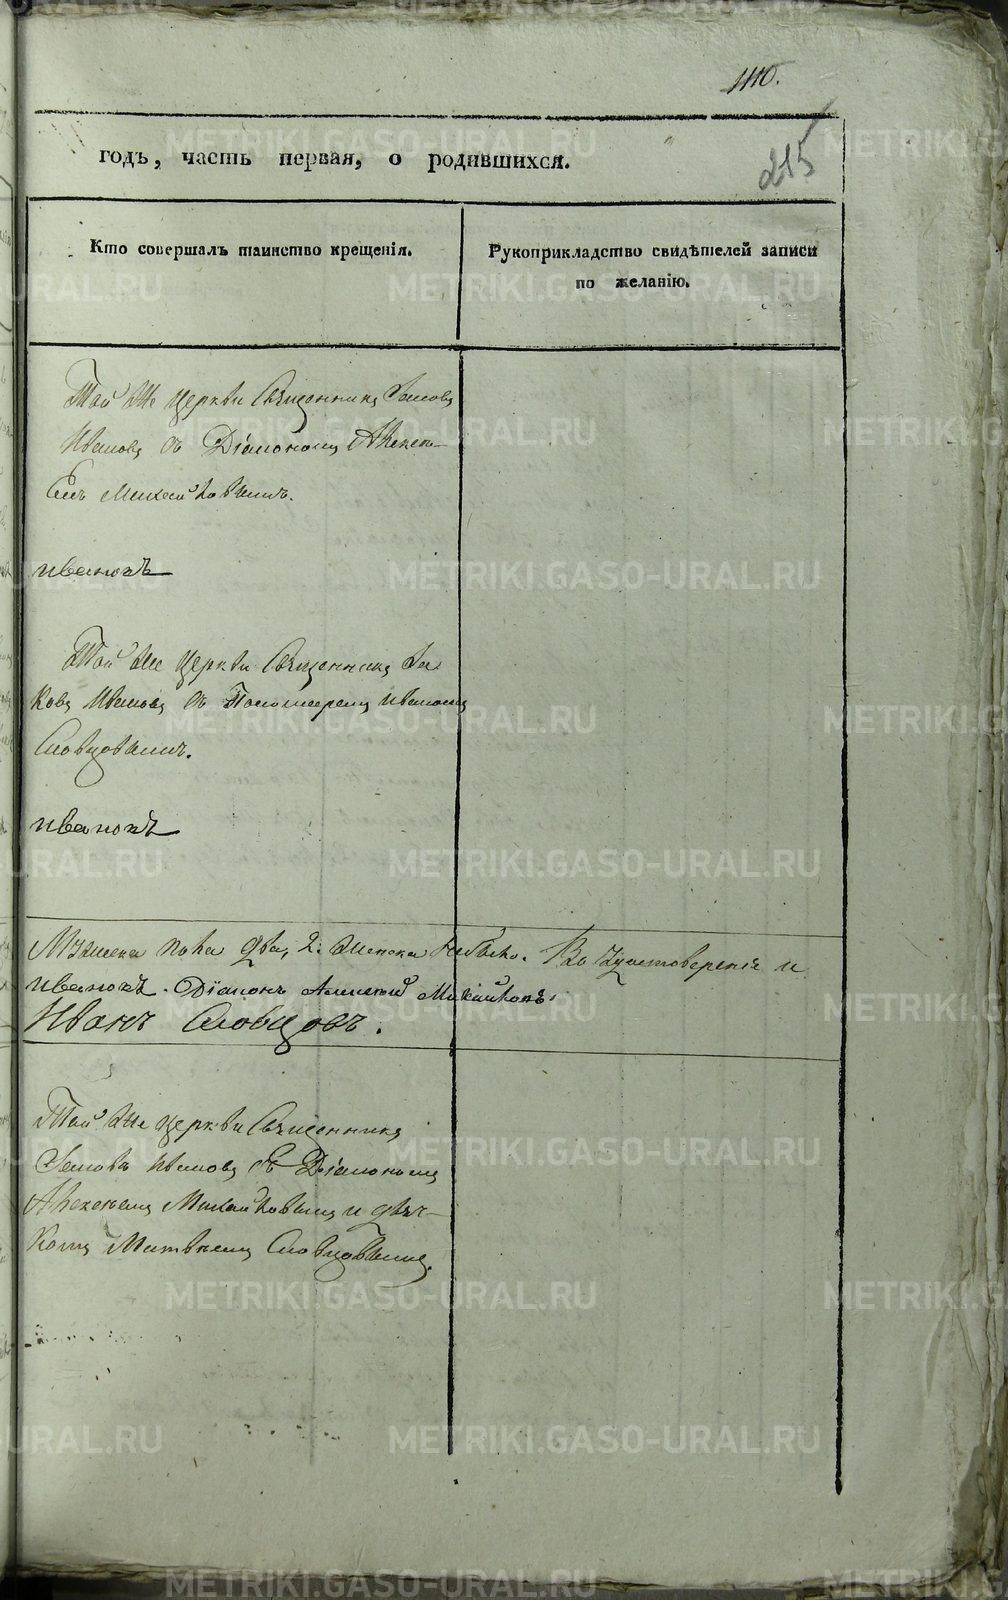 1110.
215
годъ, часть первая, о родившихся.
Кто совершалъ таинство крещенія.
Рукоприкладство свидѣтелей записи
по желанію.
Той же церкви Священникъ Іаковъ
Ивановъ съ Діакономъ Алексѣ-
емъ Михайловымъ.
ивановъ
Той же церкви Священникъ Іа
ковъ Ивановъ съ Пономаремъ иваномъ
Словцовымъ.
ивановъ
пола два, 2. женска Во удостоверение и
ивановъ. Діаконъ Алексей Михайловъ.
Иванъ Словцовъ.
Той же церкви Священникъ
Іаковъ ивановъ съ Діакономъ
Алексеемъ Михайловымъ и дьяч-
комъ Матвѣемъ Словцовымъ.
METRIKI.GASO-URAL.RU